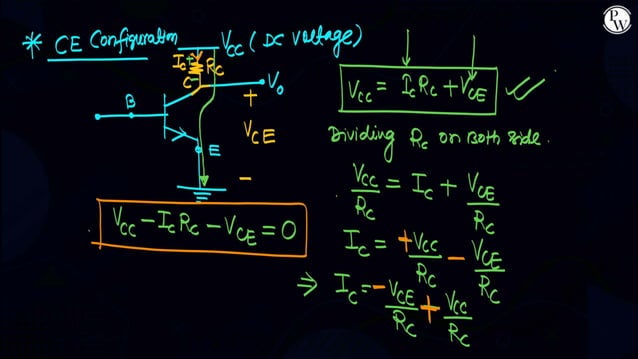 * CE Configuration
VCC (DC Voltage)
IC + RC
C -
V0
B
+
VCE
E
-
VCC - ICRC - VCE = 0
VCC = ICRC + VCE
Dividing RC on Both side.
VCC/RC = IC + VCE/RC
IC = +VCC/RC - VCE/RC
⇒ IC = -VCE/RC + VCC/RC
PW